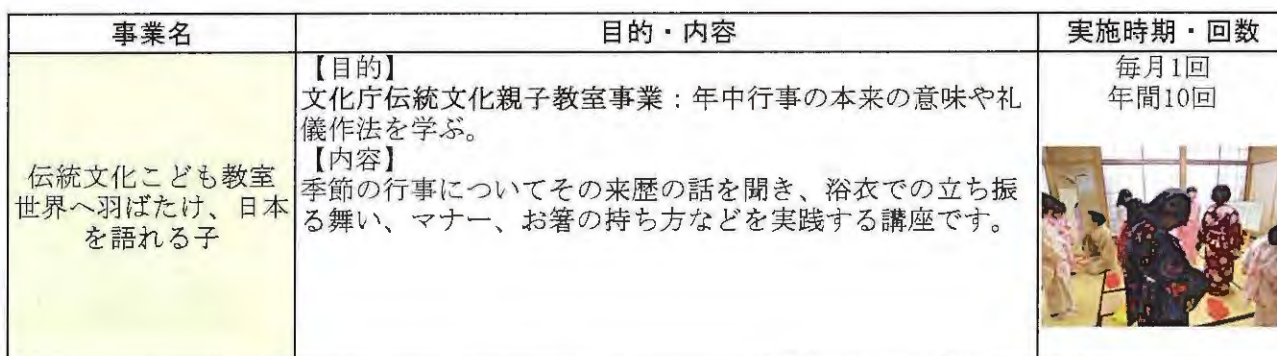 事業名
目的・内容
実施時期・回数
伝統文化こども教室
世界へ羽ばたけ、日本
を語れる子
【目的】
文化庁伝統文化親子教室事業：年中行事の本来の意味や礼
儀作法を学ぶ。
【内容】
季節の行事についてその来歴の話を聞き、浴衣での立ち振
る舞い、マナー、お箸の持ち方などを実践する講座です。
毎月1回
年間10回